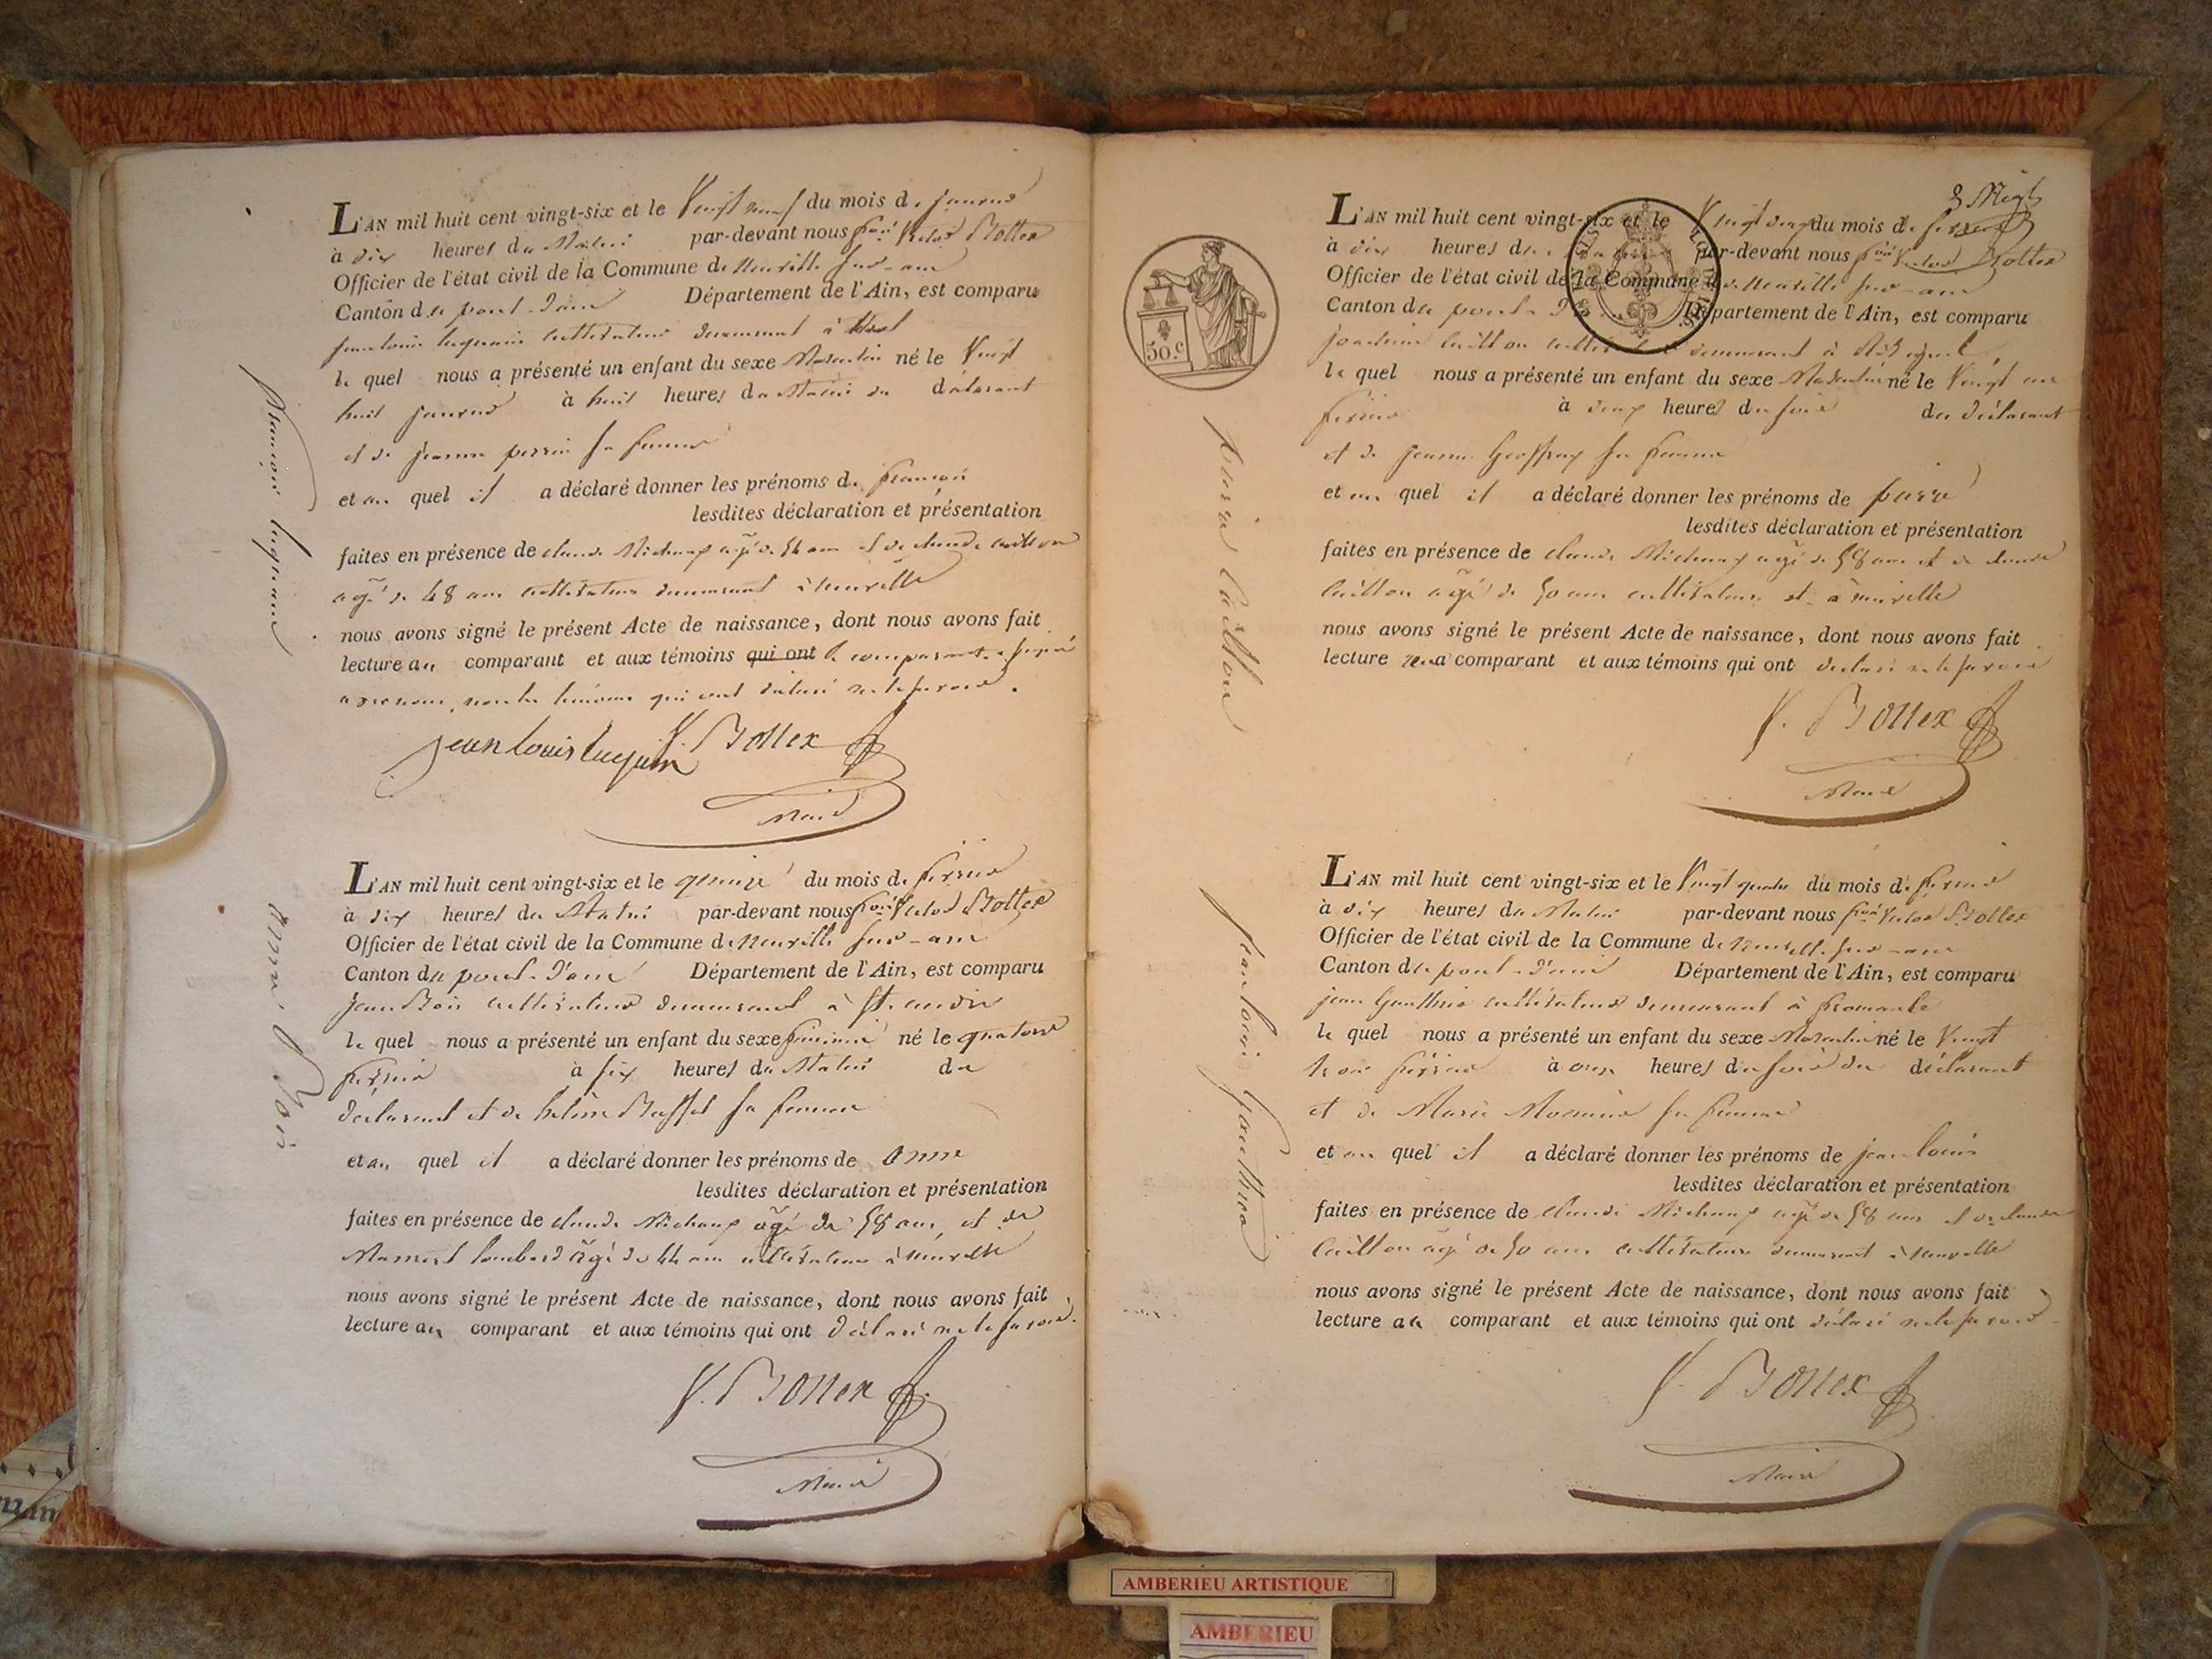 françois luquain
L'AN mil huit cent vingt-six et le Vingt neuf du mois de janvier
à dix heures du Matin par-devant nous fois Victor Bottex
Officier de l'état civil de la Commune de Neuville sur-ain
Canton de pont-d'ain Département de l'Ain, est comparu
jean louis luquain cultivateur demeurant à
le quel nous a présenté un enfant du sexe Masculin né le Vingt
huit janvier à huit heures du Matin du déclarant
et de jeanne perrin sa femme
et au quel il a déclaré donner les prénoms de françois
lesdites déclaration et présentation
faites en présence de claude Michaux agé de ans et de claude caillon
agé de 48 ans cultivateurs demeurant à neuville
nous avons signé le présent Acte de naissance, dont nous avons fait
lecture au comparant et aux témoins qui ont le comparant a signé
avec nous, non les témoins qui ont déclaré ne le savoir.
jean louis luquain V. Bottex
Maire
anne Bois
L'AN mil huit cent vingt-six et le quinze du mois de février
à dix heures du Matin par-devant nous fois Victor Bottex
Officier de l'état civil de la Commune de Neuville sur-ain
Canton du pont-d'ain Département de l'Ain, est comparu
jean Bois cultivateur demeurant à St. andré
le quel nous a présenté un enfant du sexe féminin né le quatorze
février à six heures du Matin du
déclarant et de helène Buffet sa femme
et au quel il a déclaré donner les prénoms de anne
lesdites déclaration et présentation
faites en présence de claude Michaux agé de 58 ans, et de
Mamert lombard agé de 44 ans cultivateurs à neuville
nous avons signé le présent Acte de naissance, dont nous avons fait
lecture au comparant et aux témoins qui ont déclaré ne le savoir.
V. Bottex
Maire
50.c
pierre caillon
L'AN mil huit cent vingt-six et le Vingt deux du mois de février
à dix heures du par-devant nous fois Victor Bottex
Officier de l'état civil de la Commune de Neuville sur-ain
Canton du pont-d' Département de l'Ain, est comparu
caillon demeurant à
le quel nous a présenté un enfant du sexe Masculin né le Vingt un
février à deux heures du soir du déclarant
et de jeanne Geoffray sa femme
et au quel il a déclaré donner les prénoms de pierre
lesdites déclaration et présentation
faites en présence de claude Michaux agé de 58 ans et de claude
caillon agé de 50 ans cultivateurs et à neuville
nous avons signé le présent Acte de naissance, dont nous avons fait
lecture au comparant et aux témoins qui ont déclaré ne le savoir
V. Bottex
Maire
jean louis Gauthier
L'AN mil huit cent vingt-six et le Vingt quatre du mois de février
à dix heures du Matin par-devant nous fois Victor Bottex
Officier de l'état civil de la Commune de Neuville sur-ain
Canton du pont-d'ain Département de l'Ain, est comparu
jean Gauthier cultivateur demeurant à fromente
le quel nous a présenté un enfant du sexe Masculin né le Vingt
trois février à onze heures du soir du déclarant
et de Marie sa femme
et au quel il a déclaré donner les prénoms de jean-louis
lesdites déclaration et présentation
faites en présence de claude Michaux agé de 58 ans et de claude
caillon agé de 50 ans cultivateurs demeurant à neuville
nous avons signé le présent Acte de naissance, dont nous avons fait
lecture au comparant et aux témoins qui ont déclaré ne le savoir
V. Bottex
Maire
AMBERIEU ARTISTIQUE
AMBERIEU